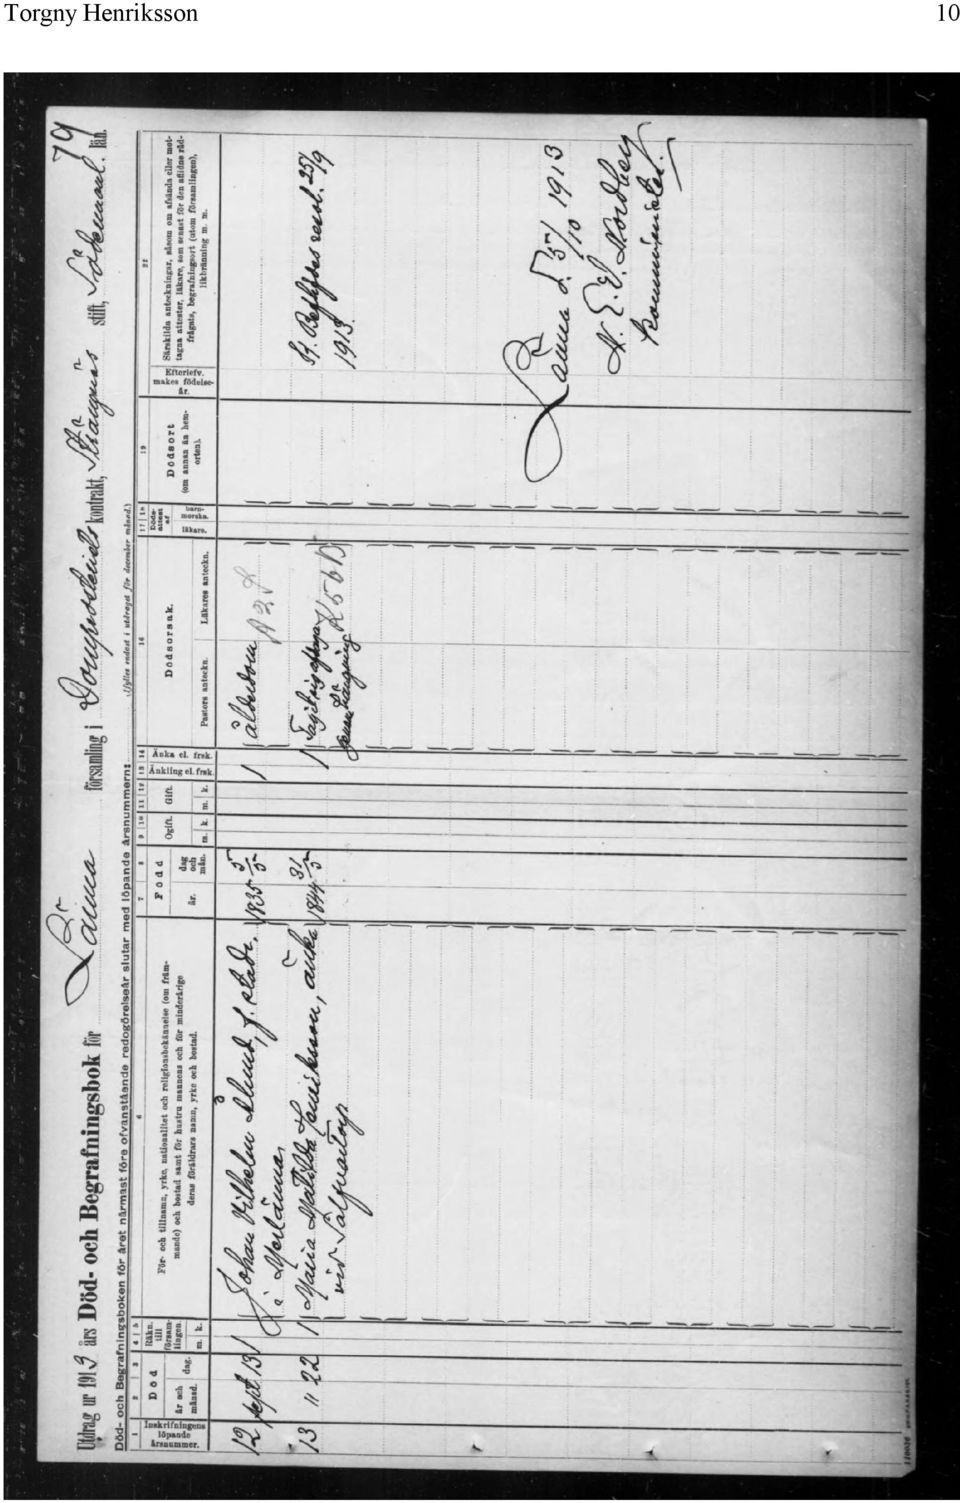 Torgny Henriksson
10
79
Utdrag ur 1913 års Död- och Begrafningsbok för Länna församling i Domprosteriets kontrakt, Strängnäs stift, Södermanl. län.
Död- och Begrafningsboken för året närmast före ofvanstående redogörelseår slutar med löpande årsnummern:
(Ifylles endast i utdraget för december månad.)
1
2
3
4
5
6
7
8
9
10
11
12
13
14
16
17
18
19
22
Inskrifningens
löpande
årsnummer.
Död
år och
månad.
dag.
Räkn.
till
församlingen.
m.
k.
För- och tillnamn, yrke, nationalitet och religionsbekännelse (om främ-
mande) och bostad samt för hustru mannens och för minderårige
deras föräldrars namn, yrke och bostad.
Född
år.
dag
och
mån.
Ogift.
m.
k.
Gift.
m.
k.
Änkling el. frsk.
Änka el. frsk.
Dödsorsak.
Pastors anteckn.
Läkares anteckn.
Döds-
attest
af
läkare.
barn-
morska.
Dödsort
(om annan än hem-
orten).
Efterlefv.
makes födelse-
år.
Särskilda anteckningar, såsom om afsända eller mot-
tagna attester, läkare, som senast för den aflidne råd-
frågats, begrafningsort (utom församlingen),
likbränning m. m.
12 sept. 13 1 Johan Vilhelm Ålund, f. stadr. 1835 5/5 1 ålderdom A 2
å Merlänna
13 " 22 1 Maria Matilda Henriksson, änka 1844 31/5 1 K 56 B
vid genom hängning
resol. 25/9
1913.
Länna d. 5/10 1913
N. E. V. Nordberg
komminister.